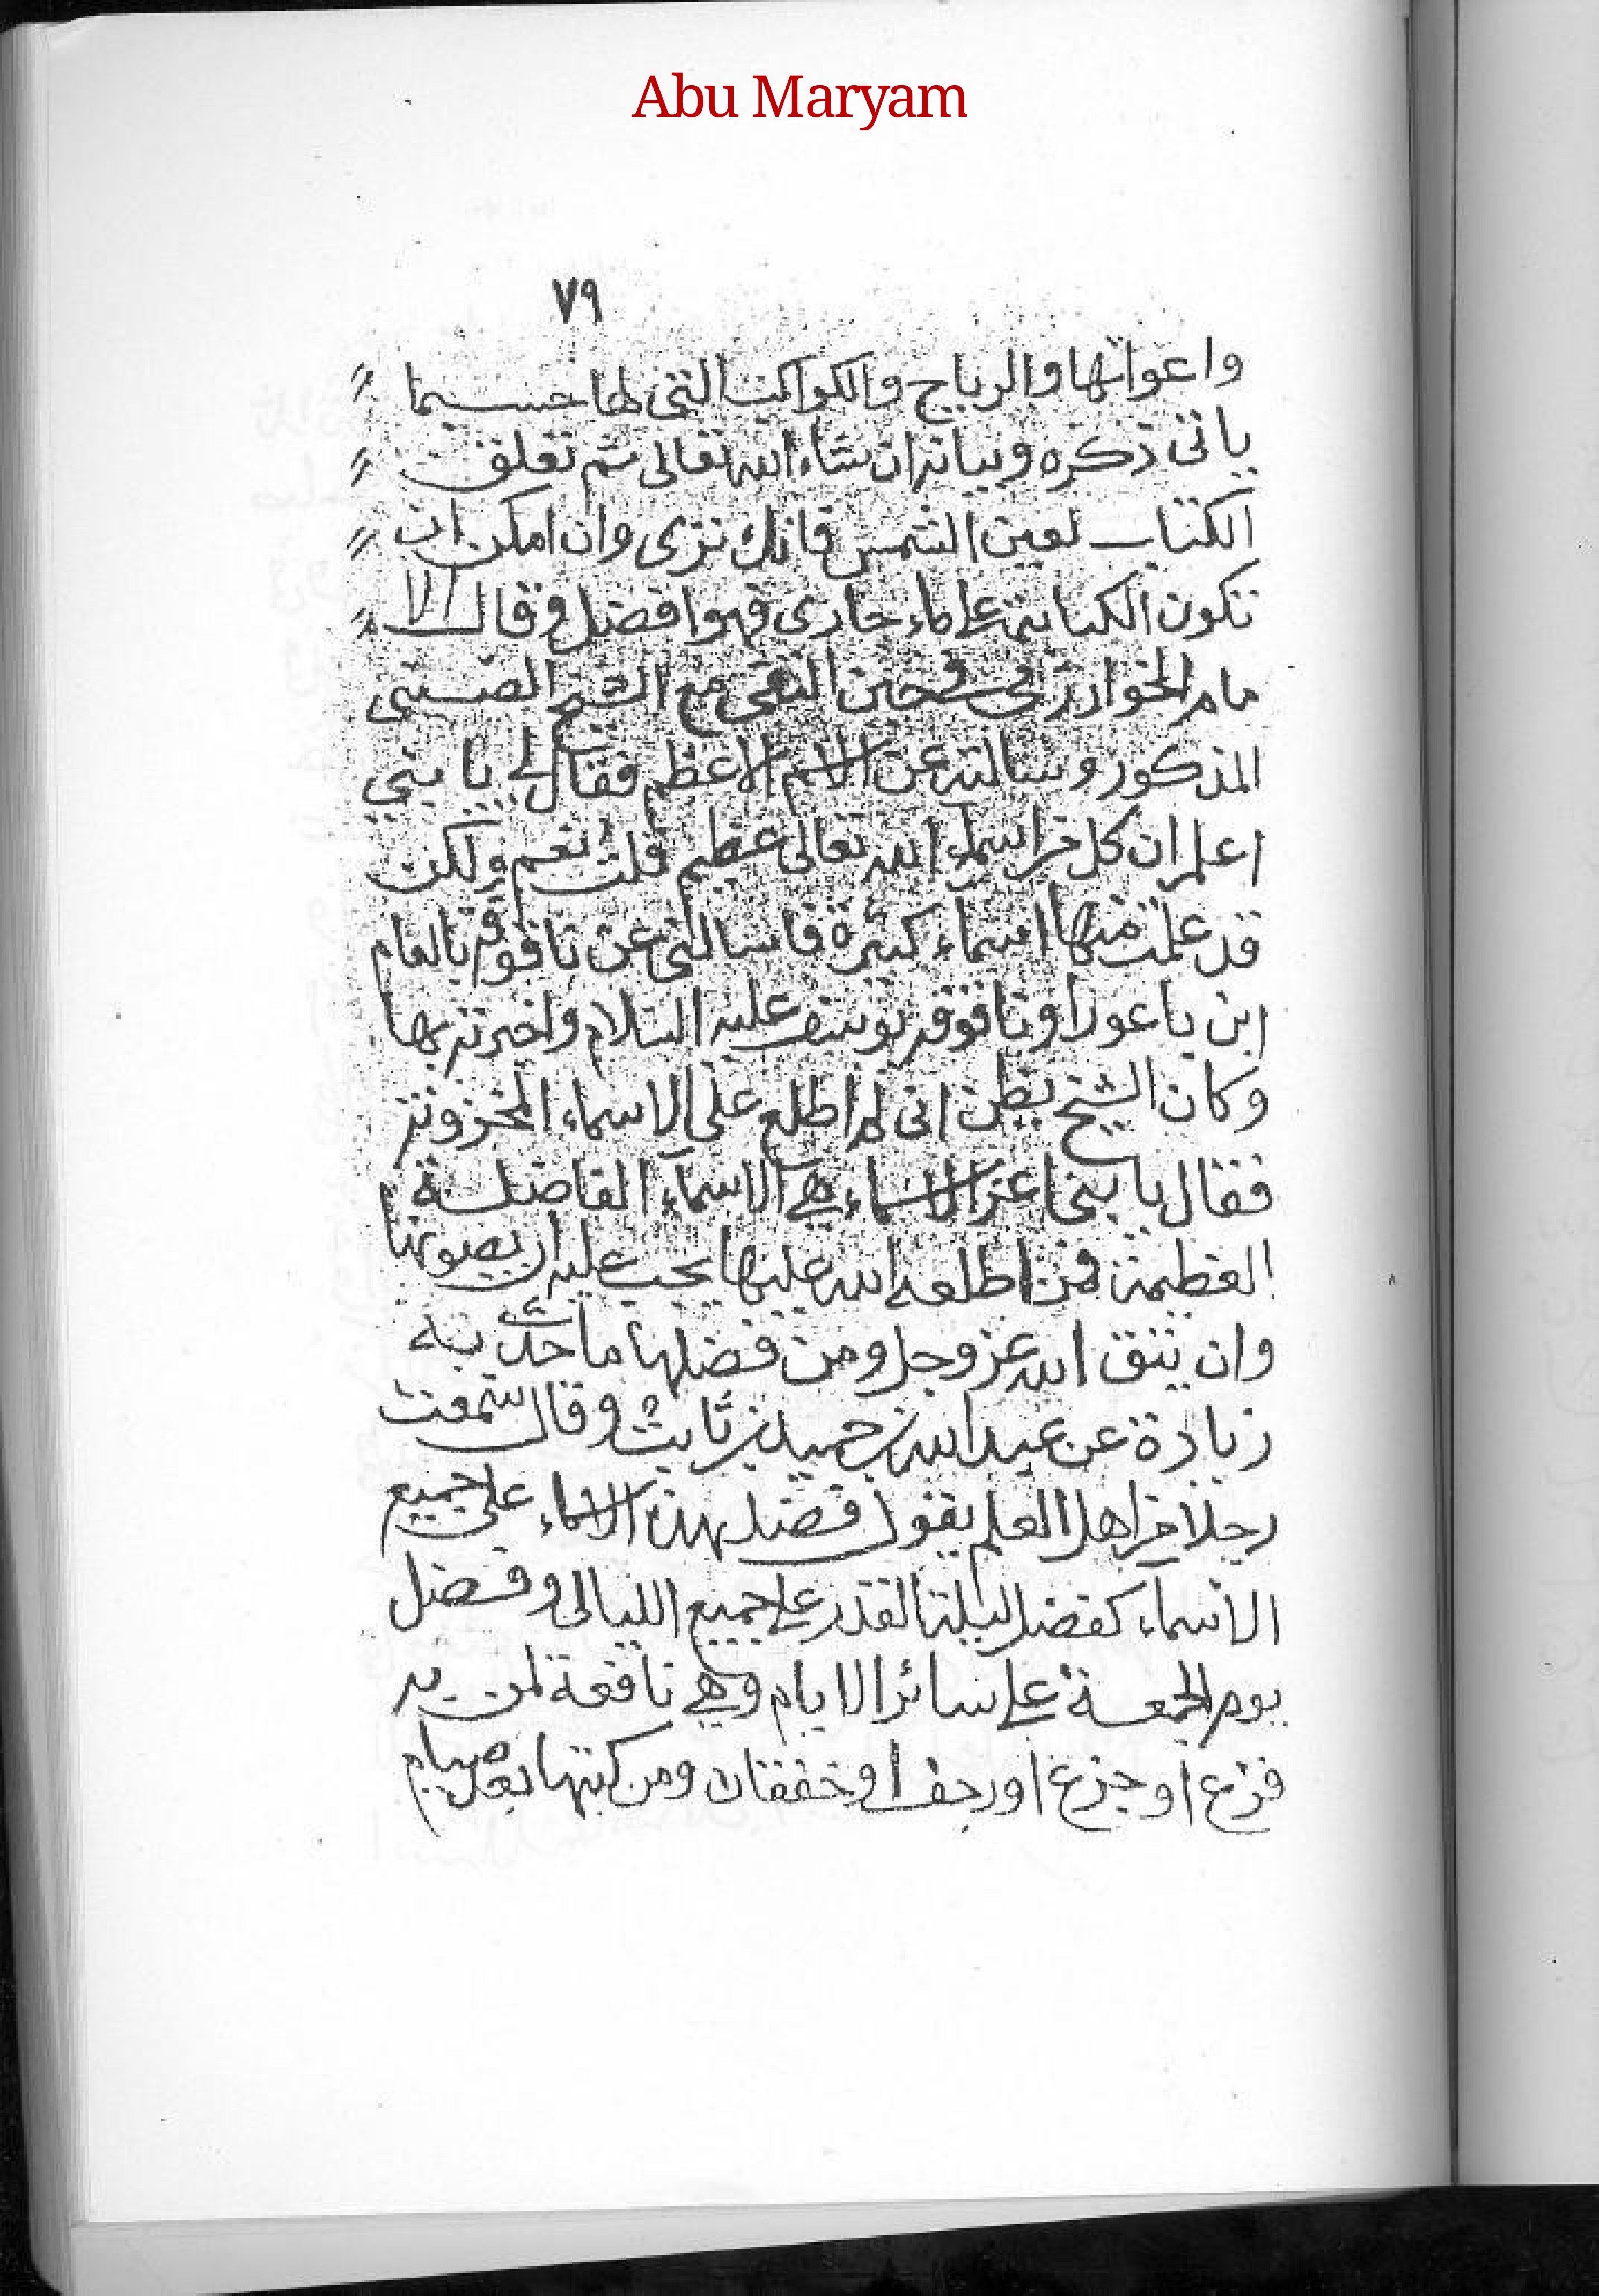 Abu Maryam
٧٩
واعوانها والرياح والكواكب التي لها حسبما
ياتى ذكره وبيانه ان شاء الله تعالى ثم تعلق
الكتاب لعين الشمس فانك ترى وان امكن ان
تكون الكتابة على ماء جارى فهو افضل وقال الا
مام الخوارزمى فى حين التقى مع الشيخ الصينى
المذكور وسالته عن الاسم الاعظم فقال لى يا بني
اعلم ان كل من اسماء الله تعالى عظيم قلت نعم ولكن
قد علمت منها اسماء كثيرة فاسالنى عن تاقوفة بالعام
ابن باعورا وتاقوفة يوسف عليه السلام واخبرته بها
وكان الشيخ يظن انى لم اطلع على الاسماء المخزونة
فقال يا بنى اعز الاسماء هي الاسماء الفاضلة
العظيمة فمن اطلعه الله عليها يجب عليه ان يصونها
وان يتق الله عز وجل ومن فضلها ما حدث به
زيادة عن عبد الله بن حميد بن ثابت وقال سمعت
رجلا من اهل العلم يقول فضل هذه الاسماء على جميع
الاسماء كفضل ليلة القدر على جميع الليالى وفضل
يوم الجمعة على سائر الايام وهي نافعة لمن به
فزع او جزع او رجف او خفقان ومن كتبها بعد صيام